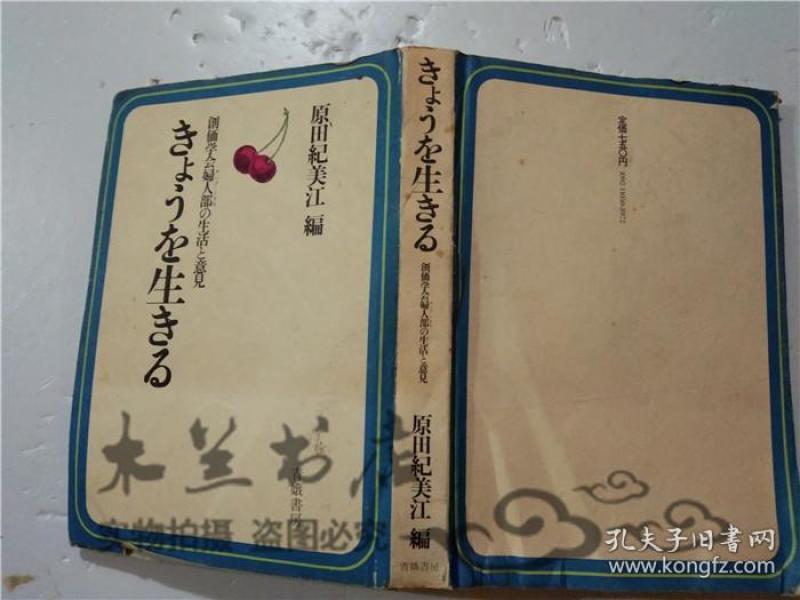 原田紀美江 編
創価学会婦人部の生活と意見
きょうを生きる
青娥書房
きょうを生きる
創価学会婦人部の生活と意見
原田紀美江 編
青娥書房
定価七五〇円
木兰书店
实物拍摄 盗图必究
孔夫子旧书网
www.kongfz.com